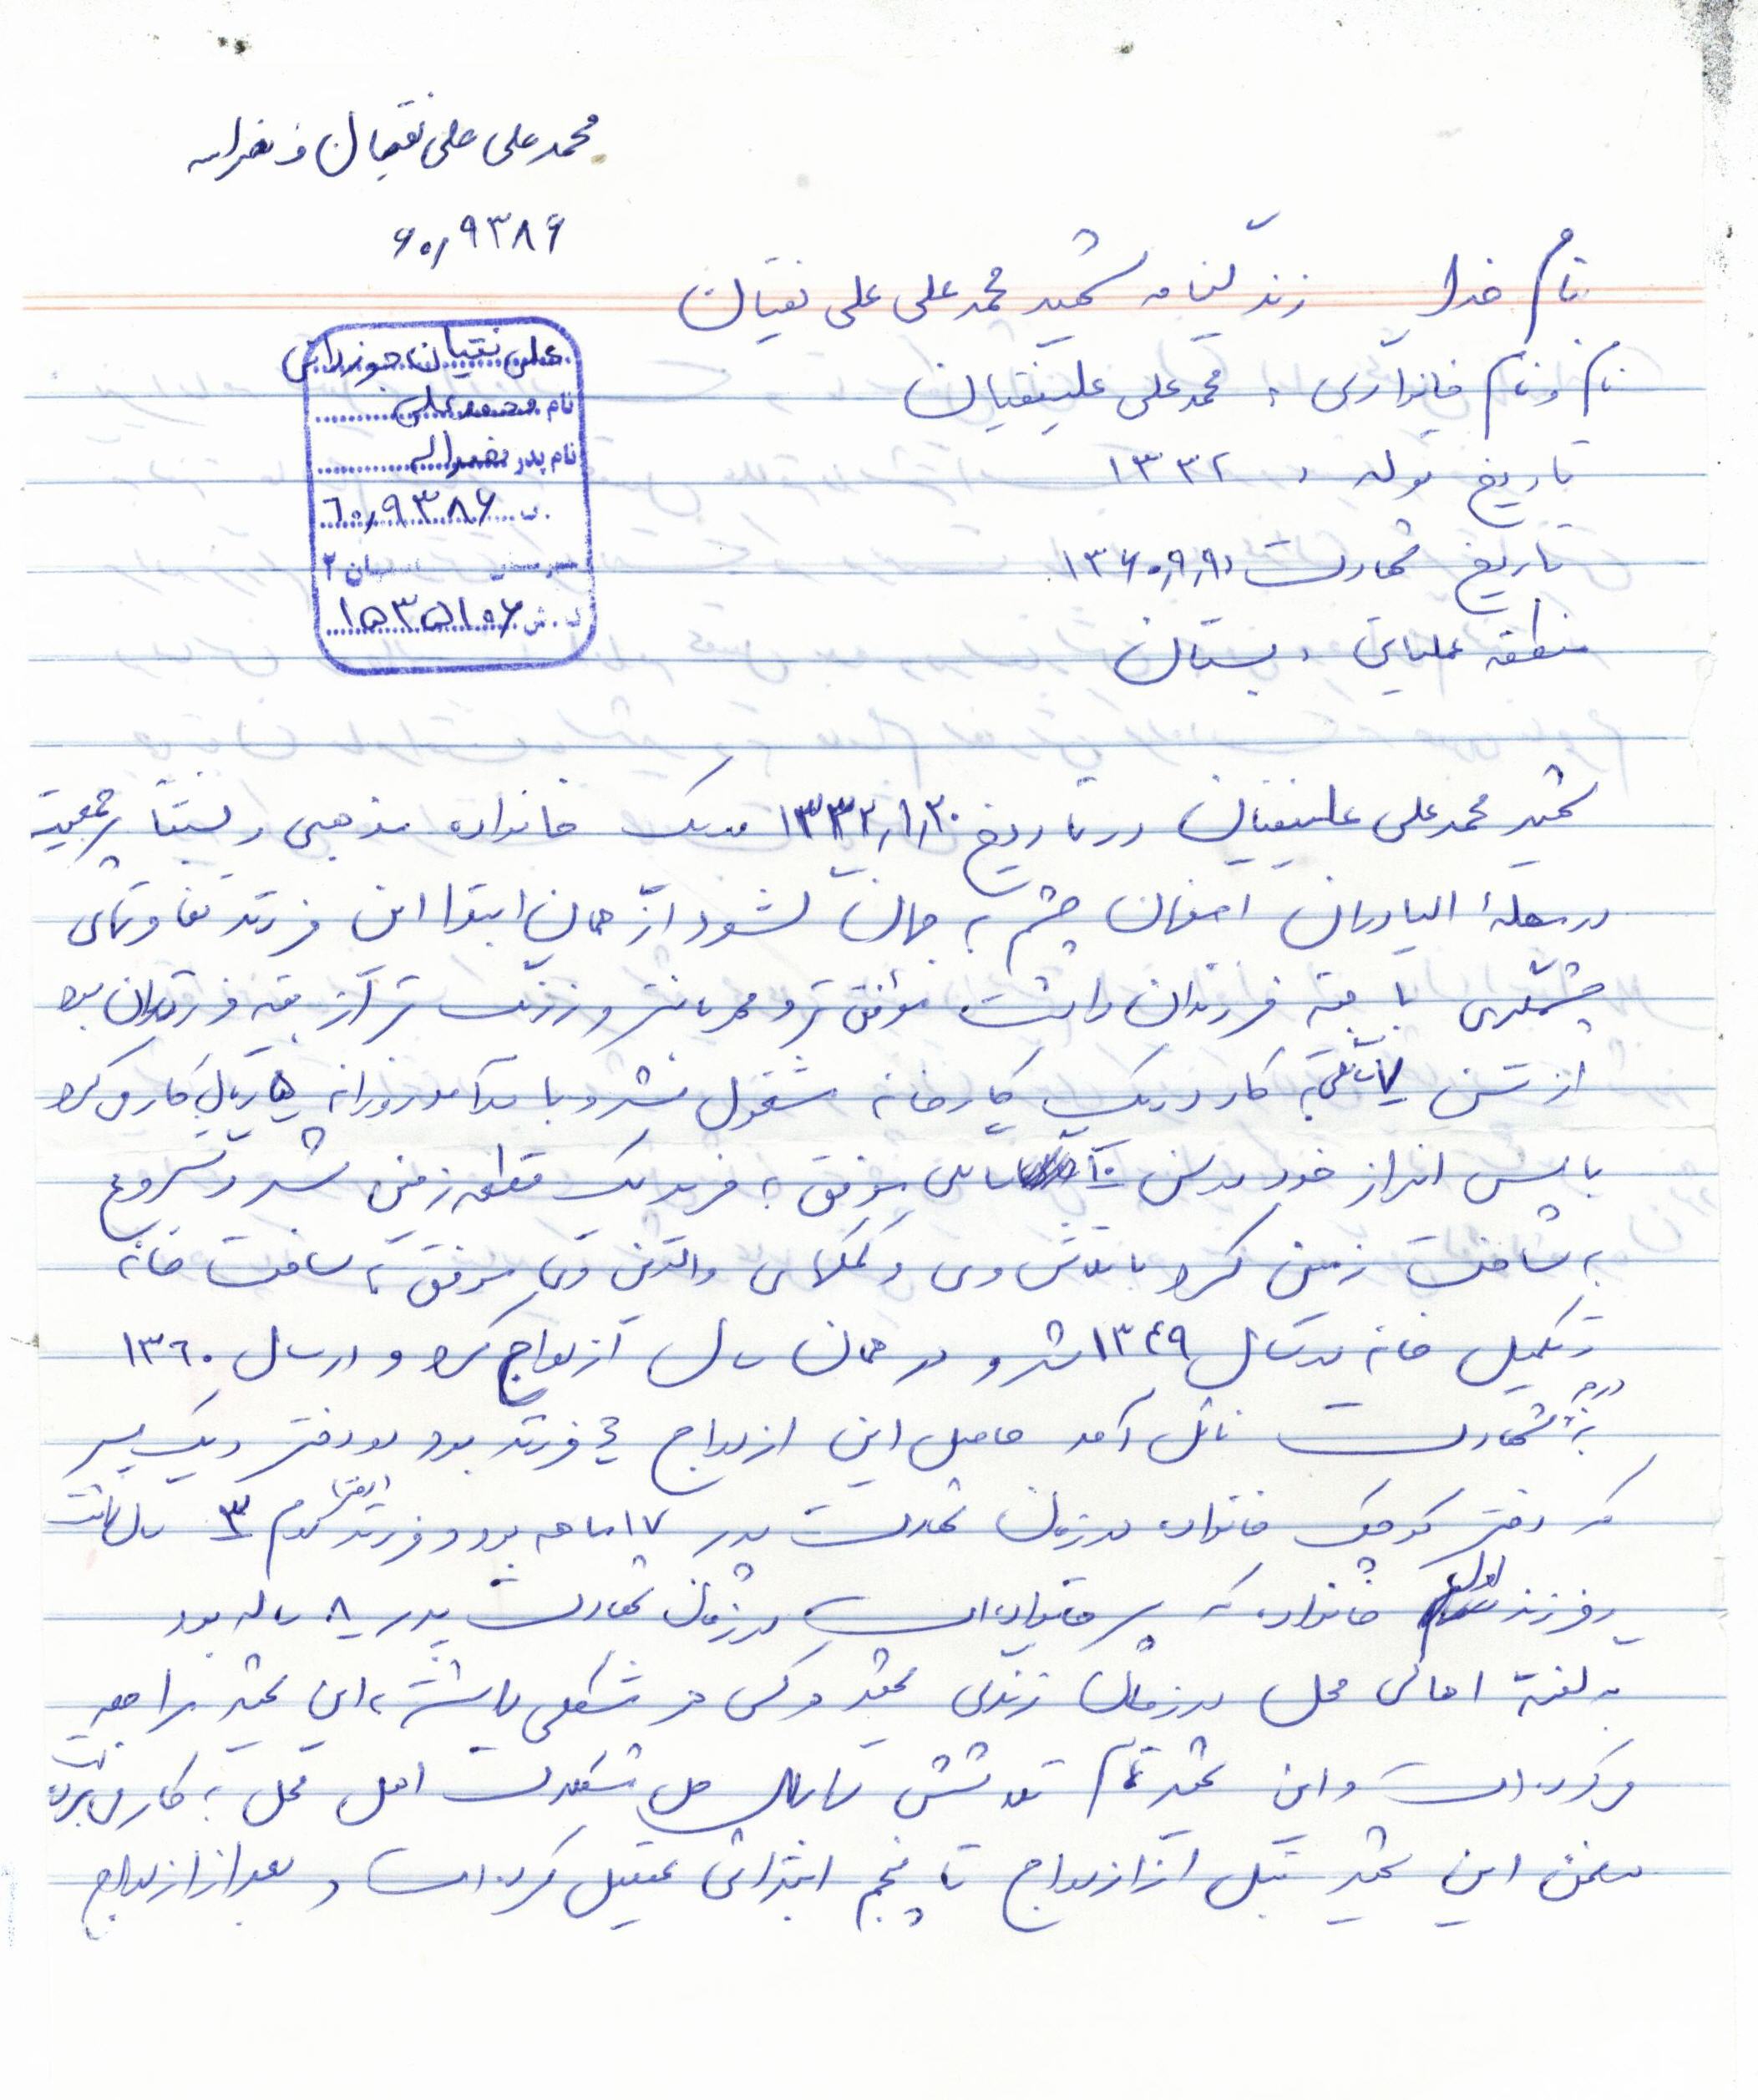 محمد علی علی نقیان ف نصراله
۶۰٫۹۳۸۶
بنام خدا زندگینامه شهید محمد علی علی نقیان
علی نقیان جوزدانی
نام محمد علی
نام پدر نصراله
۶۰٫۹۳۸۶
۲
ک.ش ۱۵۳۵۱۰۶
نام و نام خانوادگی : محمد علی علینقیان
تاریخ تولد : ۱۳۳۲
تاریخ شهادت : ۱۳۶۰٫۹٫۹
منطقه عملیاتی : بستان
شهید محمد علی علینقیان در تاریخ ۱۳۳۲٫۱٫۲۰ در یک خانواده مذهبی و نسبتاً پرجمعیت
در محله الیادران اصفهان چشم به جهان گشود از همان ابتدا این فرزند تفاوتهای
چشمگیری با بقیه فرزندان داشت موفق تر و مهربانتر و زرنگ تر از بقیه فرزندان بود
از سن ۷ سالگی به کار در یک کارخانه مشغول شد و با درآمد روزانه ۵ ریال کار می کرد
با پس انداز خود در سن سالگی موفق به خرید یک قطعه زمین شد و شروع
به ساخت زمین کرد با تلاش وی و کمکهای والدین وی موفق به ساخت خانه
و تکمیل خانه در سال ۱۳۴۹ شد و در همان سال ازدواج کرد و در سال ۱۳۶۰
به درجه شهادت نائل آمد حاصل این ازدواج ۳ فرزند بود دو دختر و یک پسر
که دختر کوچک خانواده در زمان شهادت پدر ۱۷ ماهه بود و فرزند دوم ۳ سال داشت
و فرزند اول خانواده که پسر خانواده است در زمان شهادت پدر ۸ ساله بود
به گفته اهالی محل در زمان زندگی شهید هر کس هر مشکلی داشته به این شهید مراجعه
می کرده است و این شهید تمام تلاشش را برای حل مشکلات اهل محل به کار می برده است
در ضمن این شهید قبل از ازدواج تا پنجم ابتدائی تحصیل کرده است و بعد از ازدواج